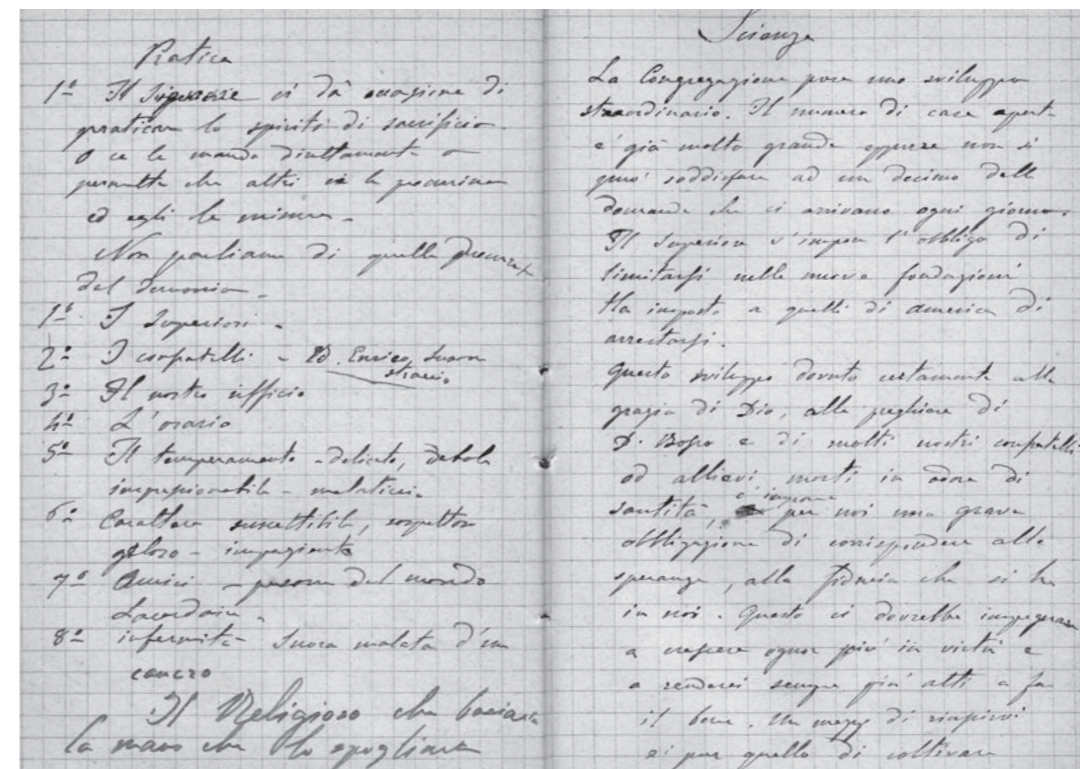 Pratica
1º Il Signore ci dà occasione di
praticare lo spirito di sacrificio.
O ce le manda direttamente o
permette che altri ce le procurino
ed egli le misura.
Non parliamo di quelle procurate
dal demonio.
1º I Superiori.
2º I confratelli - B. Enrico, Suora
straccio
3º Il nostro ufficio
4º L'orario
5º Il temperamento - delicato, debole
impressionabile - malaticcio
6º Carattere suscettibile, sospettoso
geloso - impaziente
7º Amici - persone del mondo
Lacordaire.
8º infermità - Suora malata d'un
cancro
Il Religioso che baciava
la mano che lo spogliava
Scienza
La Congregazione prese uno sviluppo
straordinario. Il numero di case aperte
è già molto grande eppure non si
può soddisfare ad un decimo delle
domande che ci arrivano ogni giorno.
Il Superiore s'impose l'obbligo di
limitarsi nelle nuove fondazioni
Ha imposto a quelli di america di
arrestarsi.
Questo sviluppo dovuto certamente alla
grazia di Dio, alle preghiere di
D. Bosco e di molti nostri confratelli
od allievi morti in odore di
santità, impone per noi una grave
obbligazione di corrispondere alle
speranze, alla fiducia che si ha
in noi. Questo ci dovrebbe impegnare
a crescere ognor più in virtù e
a renderci sempre più atti a far
il bene. Un mezzo di riuscirvi
si è pur quello di coltivare